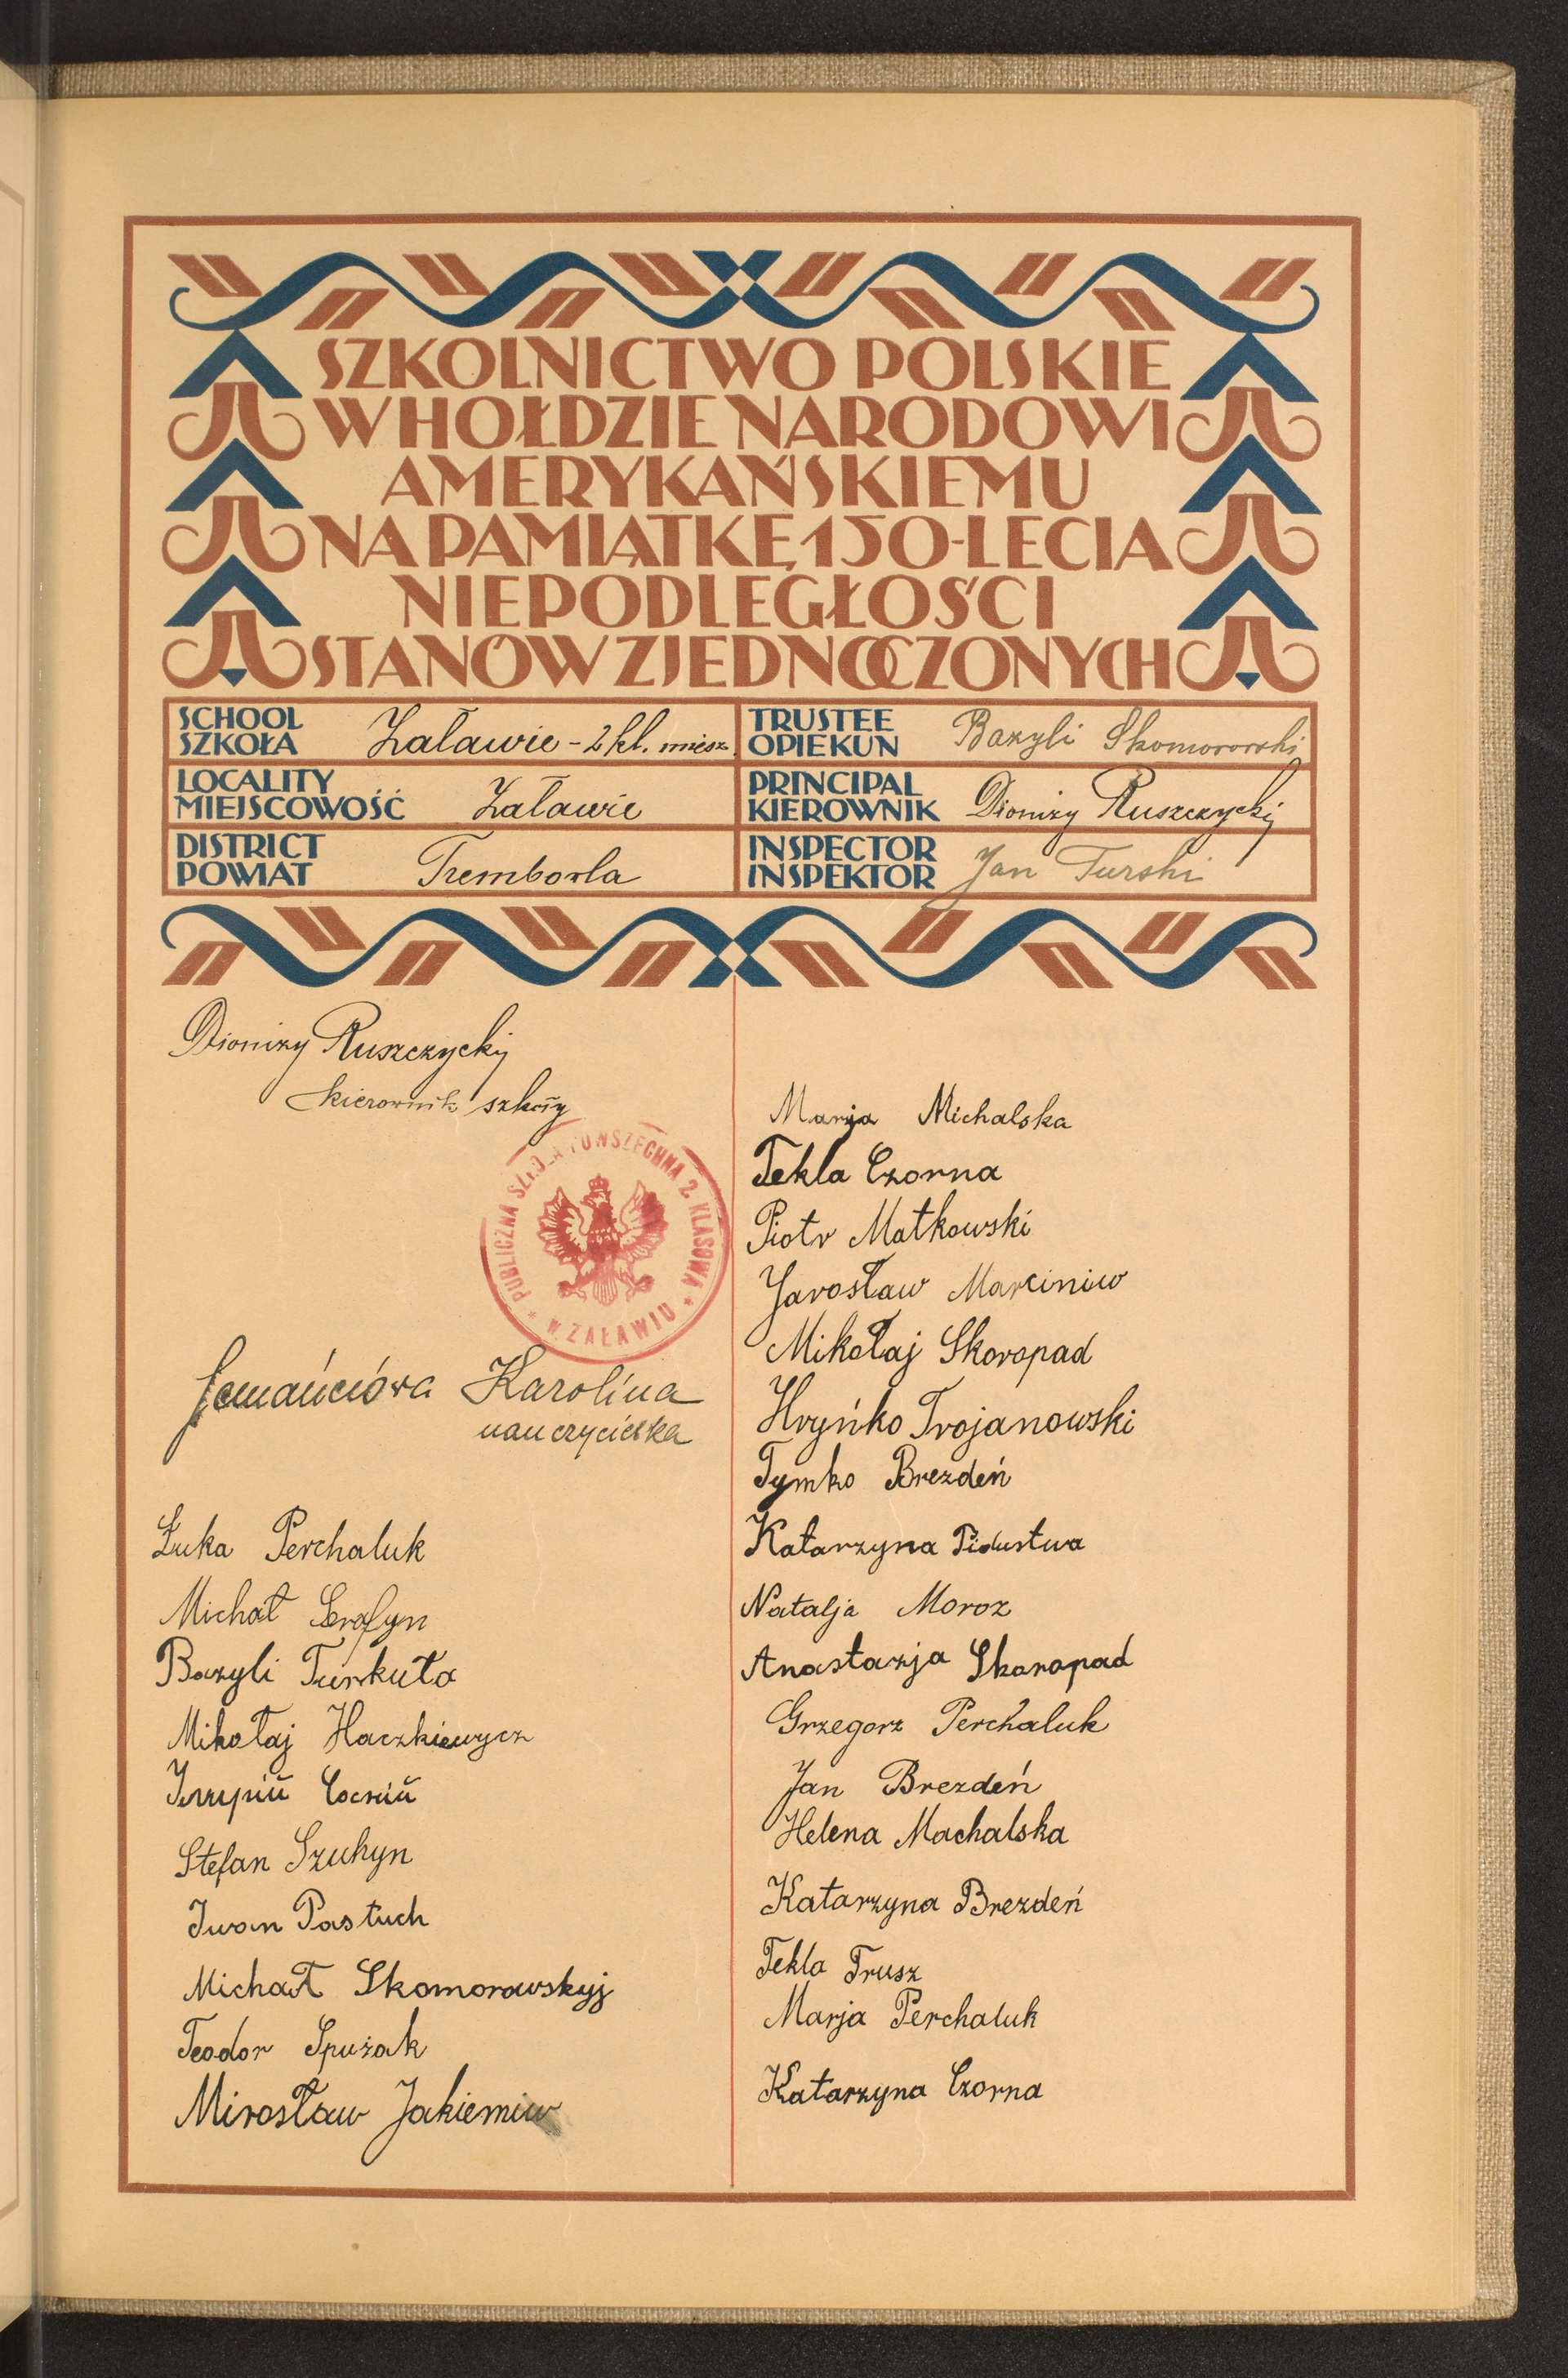 SZKOLNICTWO POLSKIE
W HOŁDZIE NARODOWI
AMERYKAŃSKIEMU
NA PAMIĄTKĘ 150-LECIA
NIEPODLEGŁOŚCI
STANÓW ZJEDNOCZONYCH
SCHOOL
SZKOŁA
Załawie - 2 kl. miesz.
TRUSTEE
OPIEKUN
Bazyli Skomorowski
LOCALITY
MIEJSCOWOŚĆ
Załawie
PRINCIPAL
KIEROWNIK
Dionizy Ruszczyckij
DISTRICT
POWIAT
Trembowla
INSPECTOR
INSPEKTOR
Jan Turski
Dionizy Ruszczyckij
kierownik szkoły
PUBLICZNA SZKOŁA POWSZECHNA 2. KLASOWA
* W ZAŁAWIU *
Karolina
nauczycielka
Łuka Perchaluk
Michał Serafyn
Bazyli Turkuła
Mikołaj Haczkiewycz
Stefan Szuhyn
Iwan Pastuch
Michał Skomorowskyj
Teodor Spużak
Mirosław Jakiemiw
Marja Michalska
Tekla Czorna
Piotr Matkowski
Jarosław Marciniw
Mikołaj Skoropad
Hryńko Trojanowski
Tymko Brezdeń
Katarzyna
Natalja Moroz
Anastazja Skoropad
Grzegorz Perchaluk
Jan Brezdeń
Helena Machalska
Katarzyna Brezdeń
Tekla Trusz
Marja Perchaluk
Katarzyna Czorna